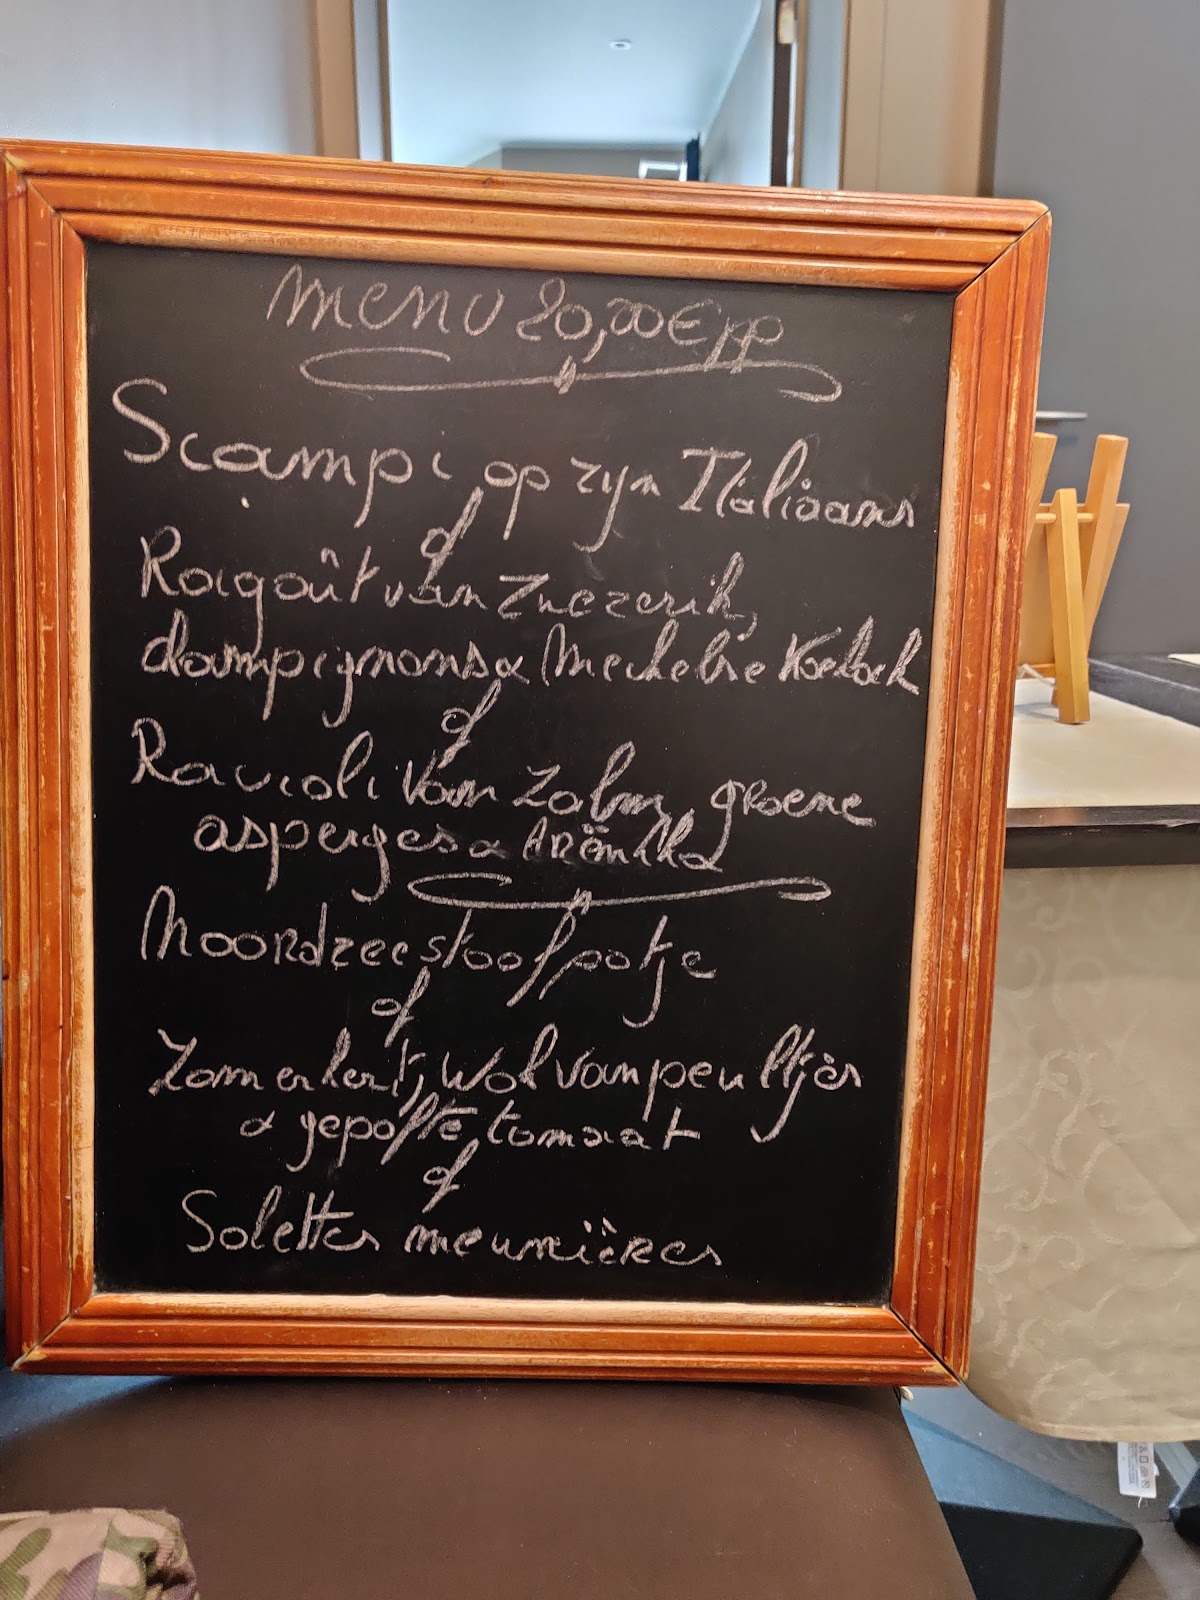 Menu 20,00€ pp
Scampi op zijn Italiaans
of
Ragoût van Zwezerik,
champignons & Mechelse Koekoek
of
Ravioli van Zalm, groene
asperges &
Noordzeestoofpotje
of
Zomerhert, Wolvanpeultjes
& gepofte tomaat
of
Solettes meunières